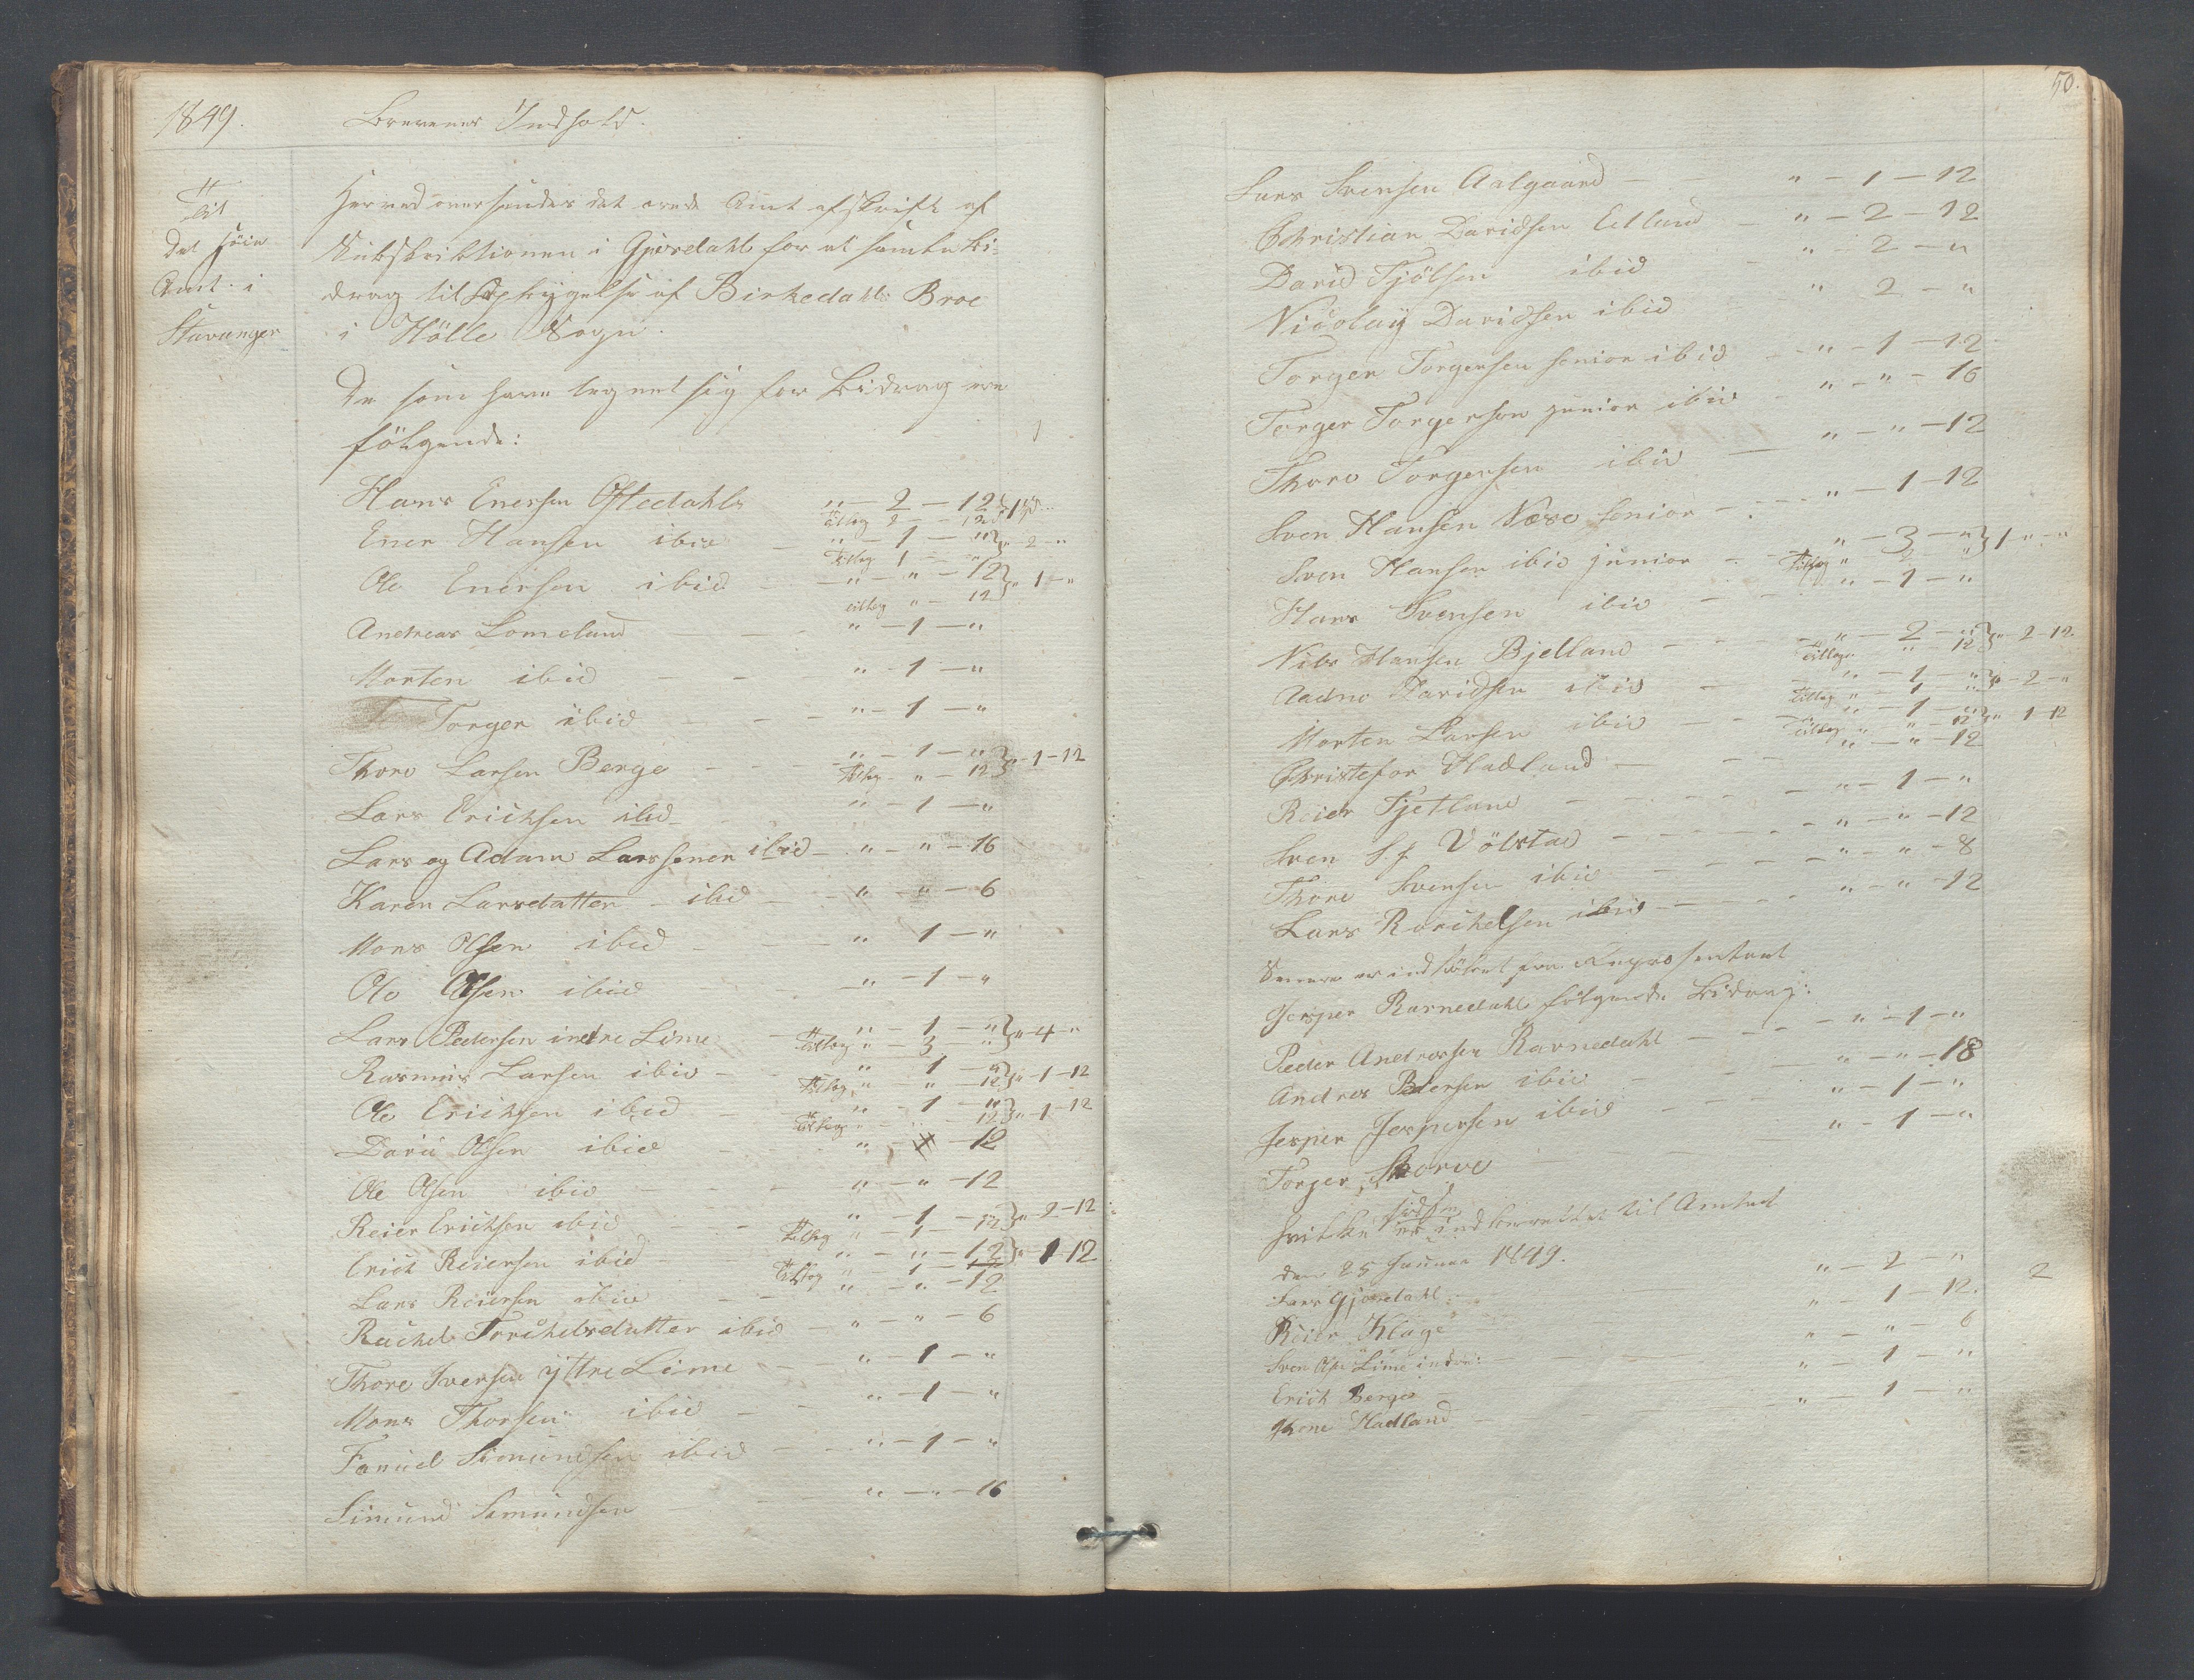 1849.
Brevenes Indhold.
Til
Det Höie
Amt i
Stavanger
Herved oversendes det ærede Amt afskrift af
Subskriktionen i Gjesdahl for at samle bi-
drag til Opbygelse af Birkedahls Broe
i Hölle Sogn.
De som have tegnet sig for bidrag ere
fölgende:
Hans Enersen Oftedahl " - 2 - 12
tillæg 2 - 12
Ener Hansen ibid - " - 1 - " } " - 2 - "
Tillæg 1 - "
Ole Enersen ibid - " - " - 12 } " - 1 - "
tillæg " - 12
Andreas Lomeland - " - 1 - "
Morten ibid - - " - 1 - "
Torger ibid - - " - 1 - "
Thore Larsen Berge - - " - 1 - " } " - 1 - 12
Tillæg - " - 12
Lars Erichsen ibid - " - 1 - "
Lars og Adam Larssener ibid - " - " - 16
Karen Larsdatter - ibid - " - " - 6
Mons Olsen ibid - " 1 - "
Ole Olsen ibid - " - 1 - "
Lars Pedersen indre Lime - " - 1 - " } " - 4 - "
tillæg " - 3 - "
Rasmus Larsen ibid - " 1 - " } " - 1 - 12
Tillæg " " - 12
Ole Erichsen ibid - " - 1 - " } " - 1 - 12
tillæg " - 12
Olsen ibid - " - 12
Ole Olsen ibid - " - " - 12
Reier Erichsen ibid - " - 1 - " } " - 2 - 12
Tillæg " - 1 - 12
Erich Reiersen ibid - " - " - 12 } " - 1 - 12
Tillæg " - 1 -
Lars Reiersen ibid - " - " - 12
Rachel Torchelsdatter ibid - " - " - 6
Thore Iversen yttre Lime - " - 1 - "
Mons Thorsen ibid - " - 1 - "
Simundsen ibid - " - 1 - "
Simund Simundsen - " - " - 16
50.
Lars Svensen Aalgaard - " - 1 - 12
Christian Davidsen Edland - " - 2 - 12
David Tjölsen ibid - " - 2 - "
Nicolay Davidsen ibid " 2 - "
Torger Torgersen senior ibid - " - 1 - 12
Torger Torgersen junior ibid - " - " - 16
Thore Torgersen ibid - " - " - 12
Sven Hansen Næse senior - " - 1 - 12
Sven Hansen ibid junior - " - 3 - " } 1 - " - "
Tillæg " 2 "
Hans Svensen ibid - " - 1 - "
Nils Hansen Bjelland - " - 2 - " } " - 2 - 12.
Tillæg " " - 12
Aadne Davidsen ibid - " - 1 - " } " - 2 - "
Tillæg " - 1 - "
Morten Larsen ibid - " - 1 - " } " 1 - 12
Tillæg " " - 12
Christofor Hadland - " - " - 12
Reier Tjetland - " - 1 - "
Sven S.f Völstad - " - " - 12
Thore Svensen ibid - " - " - 8
Lars Rorichelsen ibid - " - " - 12
Senere er indkommet fra Repræsentant
Jesper Ravnedahl fölgende bidrag:
Peder Andressen Ravnedahl - " - 1 - "
Andres Pedersen ibid - " - " - 18
Jesper Jespersen ibid - " - 1 - "
Torger Skorve - " - 1 - "
hvilke er indberettet til Amtet
den 25 Januar 1849.
Lars Gjesdahl: " - 2 - " 2
Reier Kluge " - 1 - 12.
Sven Olsen Lime indre: - " - " - 6
Erich Berge - " - 1 - "
Thore Hadland - " - 1 - "